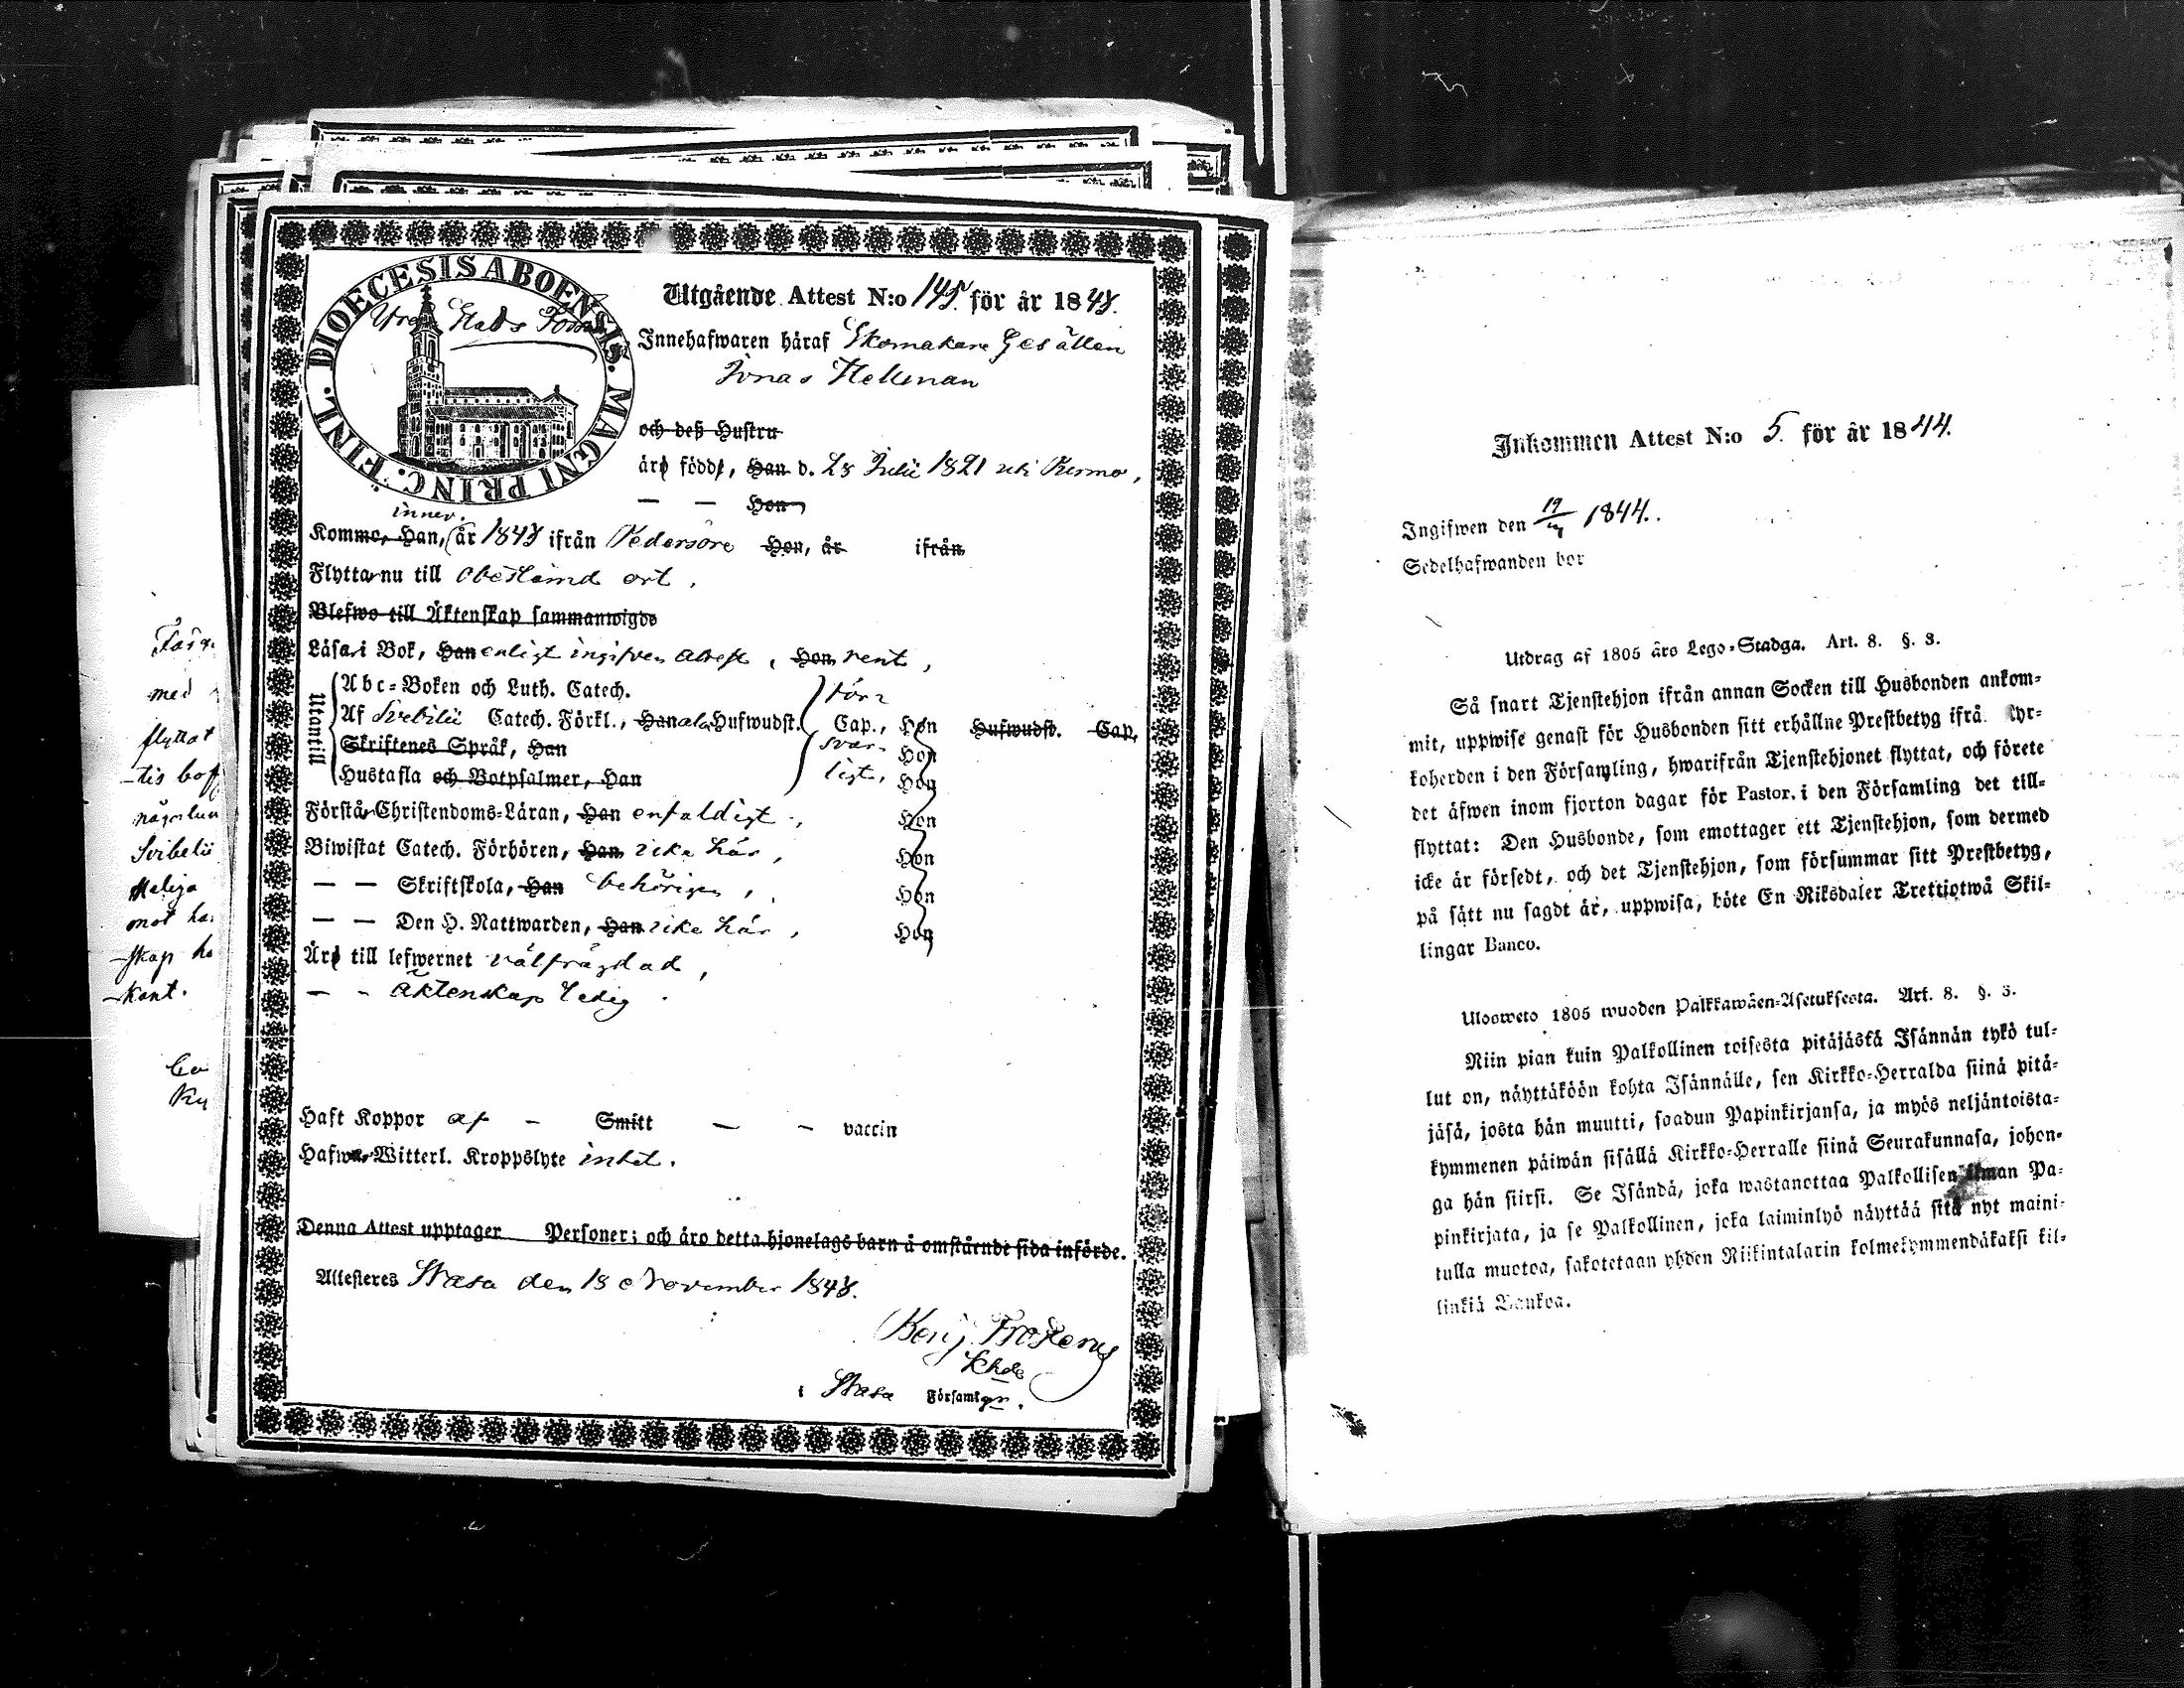 DIOECESIS ABOENSIS. MAGNI PRINC. FINL.
Utgående Attest N:o 145. för år 1843.
Innehafwaren häraf Skomakare Gesällen
Jonas Hellman
och deß Hustru
äro födde, Han d. 28 Julii 1821 uti Kermo,
— — Hon
innev.
Kommo, Han, år 1843 ifrån Pedersöre Hon, år ifrån
Flytta nu till obestämd ort.
Blefwo till Äktenskap sammanwigde
Läsa i Bok, Han enligt ingifven attest, Hon rent,
Utantill
Abc-Boken och Luth. Catech.
Af Svebilii Catech. Förkl., Han Hufwudst. Cap., Hon Hufwudst. Cap.
Skriftenes Språk, Han Hon
Hustafla och Botpsalmer, Han Hon
förr
svar-
ligt,
Förstå Christendoms-Läran, Han enfaldigt, Hon
Biwistat Catech. Förhören, Han icke här, Hon
— — Skriftskola, Han behörigen, Hon
— — Den H. Nattwarden, Han icke här, Hon
Äro till lefwernet välfrägdad,
— - Äktenskap ledig.
Haft Koppor af - Smitt — - vaccin
Hafwa Witterl. Kroppslyte intet.
Denna Attest upptager Personer; och äro detta hjonelags barn å omstående sida införde.
Attesteres Wasa den 18 November 1843.
Benj. Frosterus
Khde
i Wasa Församl gn.
med
flyttat
Svibelii
Heliga
mot
-skap
-kant.
Inkommen Attest N:o 5. för år 1844.
Ingifwen den 1844.
Sedelhafwanden bor
Utdrag af 1805 års Lego-Stadga. Art. 8. §. 3.
Så snart Tjenstehjon ifrån annan Socken till Husbonden ankom-
mit, uppwise genast för Husbonden sitt erhållne Prestbetyg ifrå Kyr-
koherden i den Församling, hwarifrån Tjenstehjonet flyttat, och förete
det äfwen inom fjorton dagar för Pastor. i den Församling det till-
flyttat: Den Husbonde, som emottager ett Tjenstehjon, som dermed
icke är försedt, och det Tjenstehjon, som försummar sitt Prestbetyg,
på sätt nu sagdt är, uppwisa, böte En Riksdaler Trettiotwå Skil-
lingar Banco.
Ulosweto 1805 wuoden Palkkawäen-Asetuksesta. Art. 8. §. 3.
Niin pian kuin Palkollinen toisesta pitäjästä Isännän tykö tul-
lut on, näyttäköön kohta Isännälle, sen Kirkko-Herralda siinä pitä-
jäsä, josta hän muutti, saadun Papinkirjansa, ja myös neljäntoista-
kymmenen päiwän sisällä Kirkko-Herralle siinä Seurakunnasa, johon-
ga hän siirsi. Se Isändä, joka wastanottaa Palkollisen ilman Pa-
pinkirjata, ja se Palkollinen, joka laiminlyö näyttää sitä nyt maini-
tulla muotoa, sakotetaan yhden Riikintalarin kolmekymmendäkaksi kil-
linkiä Baukoa.